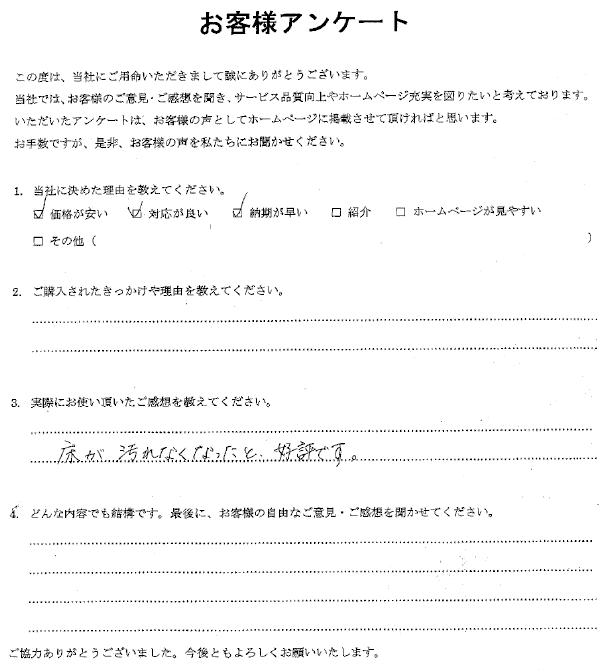 お客様アンケート
この度は、当社にご用命いただきまして誠にありがとうございます。
当社では、お客様のご意見・ご感想を聞き、サービス品質向上やホームページ充実を図りたいと考えております。
いただいたアンケートは、お客様の声としてホームページに掲載させて頂ければと思います。
お手数ですが、是非、お客様の声を私たちにお聞かせください。
1. 当社に決めた理由を教えてください。
☑ 価格が安い ☑ 対応が良い ☑ 納期が早い □ 紹介 □ ホームページが見やすい
□ その他（ ）
2. ご購入されたきっかけや理由を教えてください。
3. 実際にお使い頂いたご感想を教えてください。
床が汚れなくなったと、好評です。
4. どんな内容でも結構です。最後に、お客様の自由なご意見・ご感想を聞かせてください。
ご協力ありがとうございました。今後ともよろしくお願いいたします。